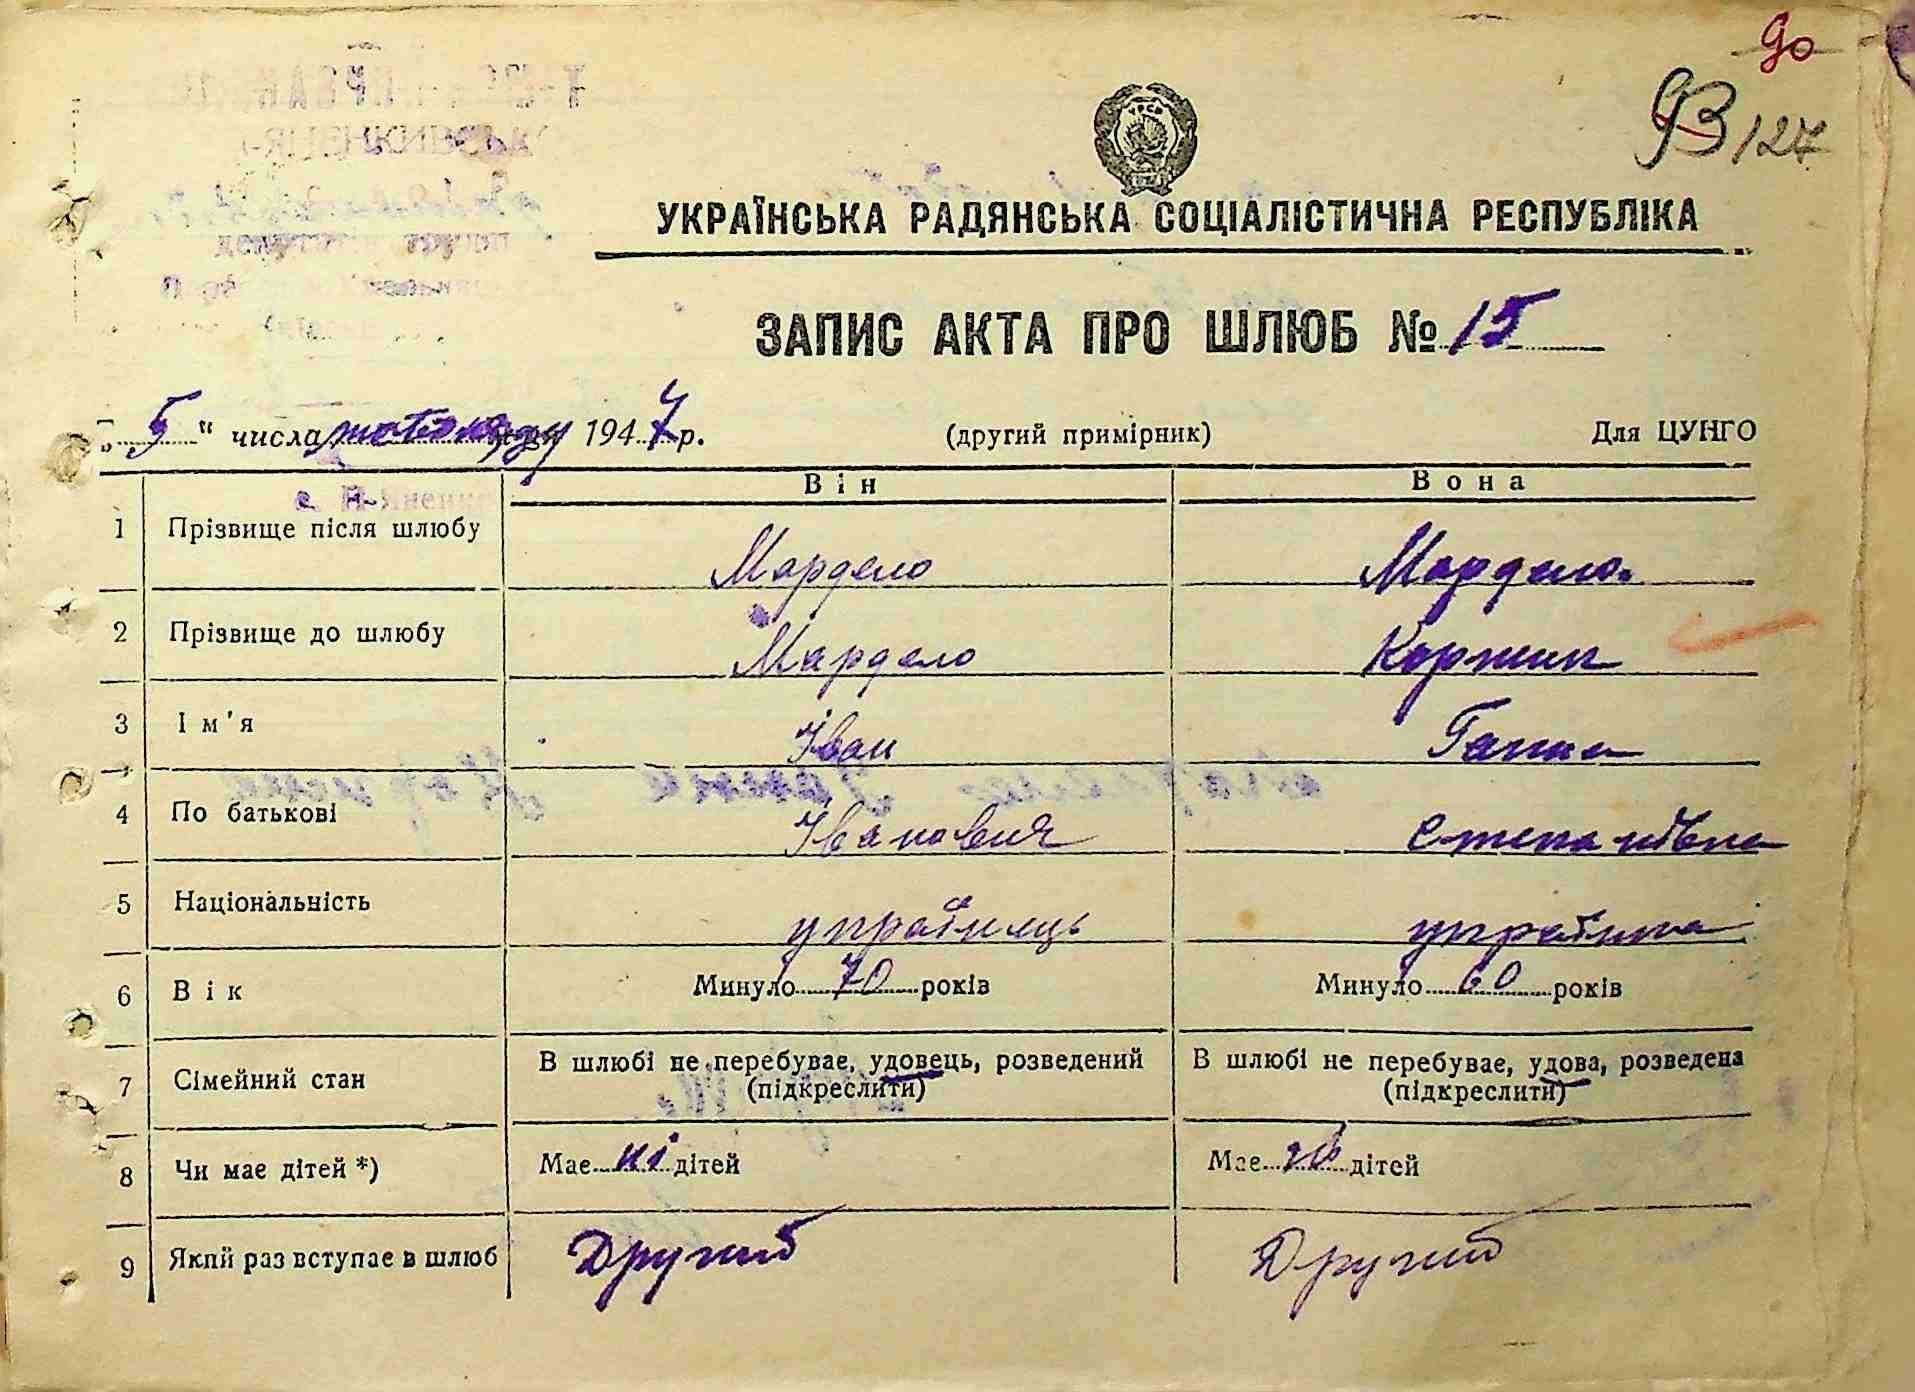 90
93 127
УКРАЇНСЬКА РАДЯНСЬКА СОЦІАЛІСТИЧНА РЕСПУБЛІКА
ЗАПИС АКТА ПРО ШЛЮБ № 15
„ 5 “ числа 1947 р. (другий примірник) Для ЦУНГО
Він Вона
1 Прізвище після шлюбу Мардело Мардело
2 Прізвище до шлюбу Мардело
3 Ім'я Іван Ганна
4 По батькові Іванович Степанівна
5 Національність українець українка
6 Вік Минуло 70 років Минуло 60 років
7 Сімейний стан В шлюбі не перебуває, удовець, розведений В шлюбі не перебуває, удова, розведена
(підкреслити) (підкреслити)
8 Чи має дітей *) Має ні дітей Має дітей
9 Який раз вступає в шлюб Другий Другий